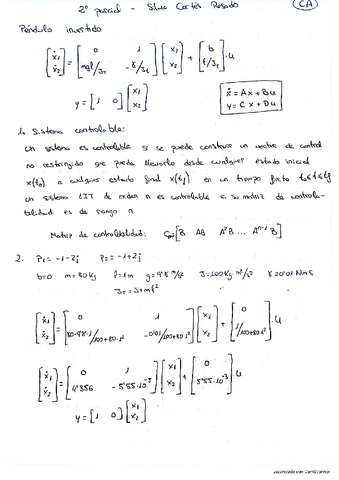 2º parcial - Silvia Cortés Rosado
CA
Péndulo invertido
[ẋ1 ẋ2] = [0 1 mgl/JT -γ/JT] [x1 x2] + [b l/JT] · u
y = [1 0] [x1 x2]
ẋ = Ax + Bu
y = Cx + Du
1. Sistema controlable:
Un sistema es controlable si se puede construir un vector de control
no restringido que pueda llevarlo desde cualquier estado inicial
x(t0) a cualquier estado final x(tf) en un tiempo finito t0≤t≤tf
Un sistema LIT de orden n es controlable si su matriz de controla-
bilidad es de rango n.
Matriz de controlabilidad: [B AB A²B ... Aⁿ⁻¹B]
2. P1 = -1-2j P2 = -1+2j
b=0 m=80Kg l=1m g=9'8 m/s² J=100Kg m²/s² γ=0'01 Nms
JT = J+ml²
[ẋ1 ẋ2] = [0 1 80·9'8·1/100+80·1² -0'01/100+80·1²] [x1 x2] + [0 1/100+80·1²] · u
[ẋ1 ẋ2] = [0 1 4'356 -5'55·10⁻⁵] [x1 x2] + [0 5'55·10⁻³] · u
y = [1 0] [x1 x2]
Escaneado con CamScanner